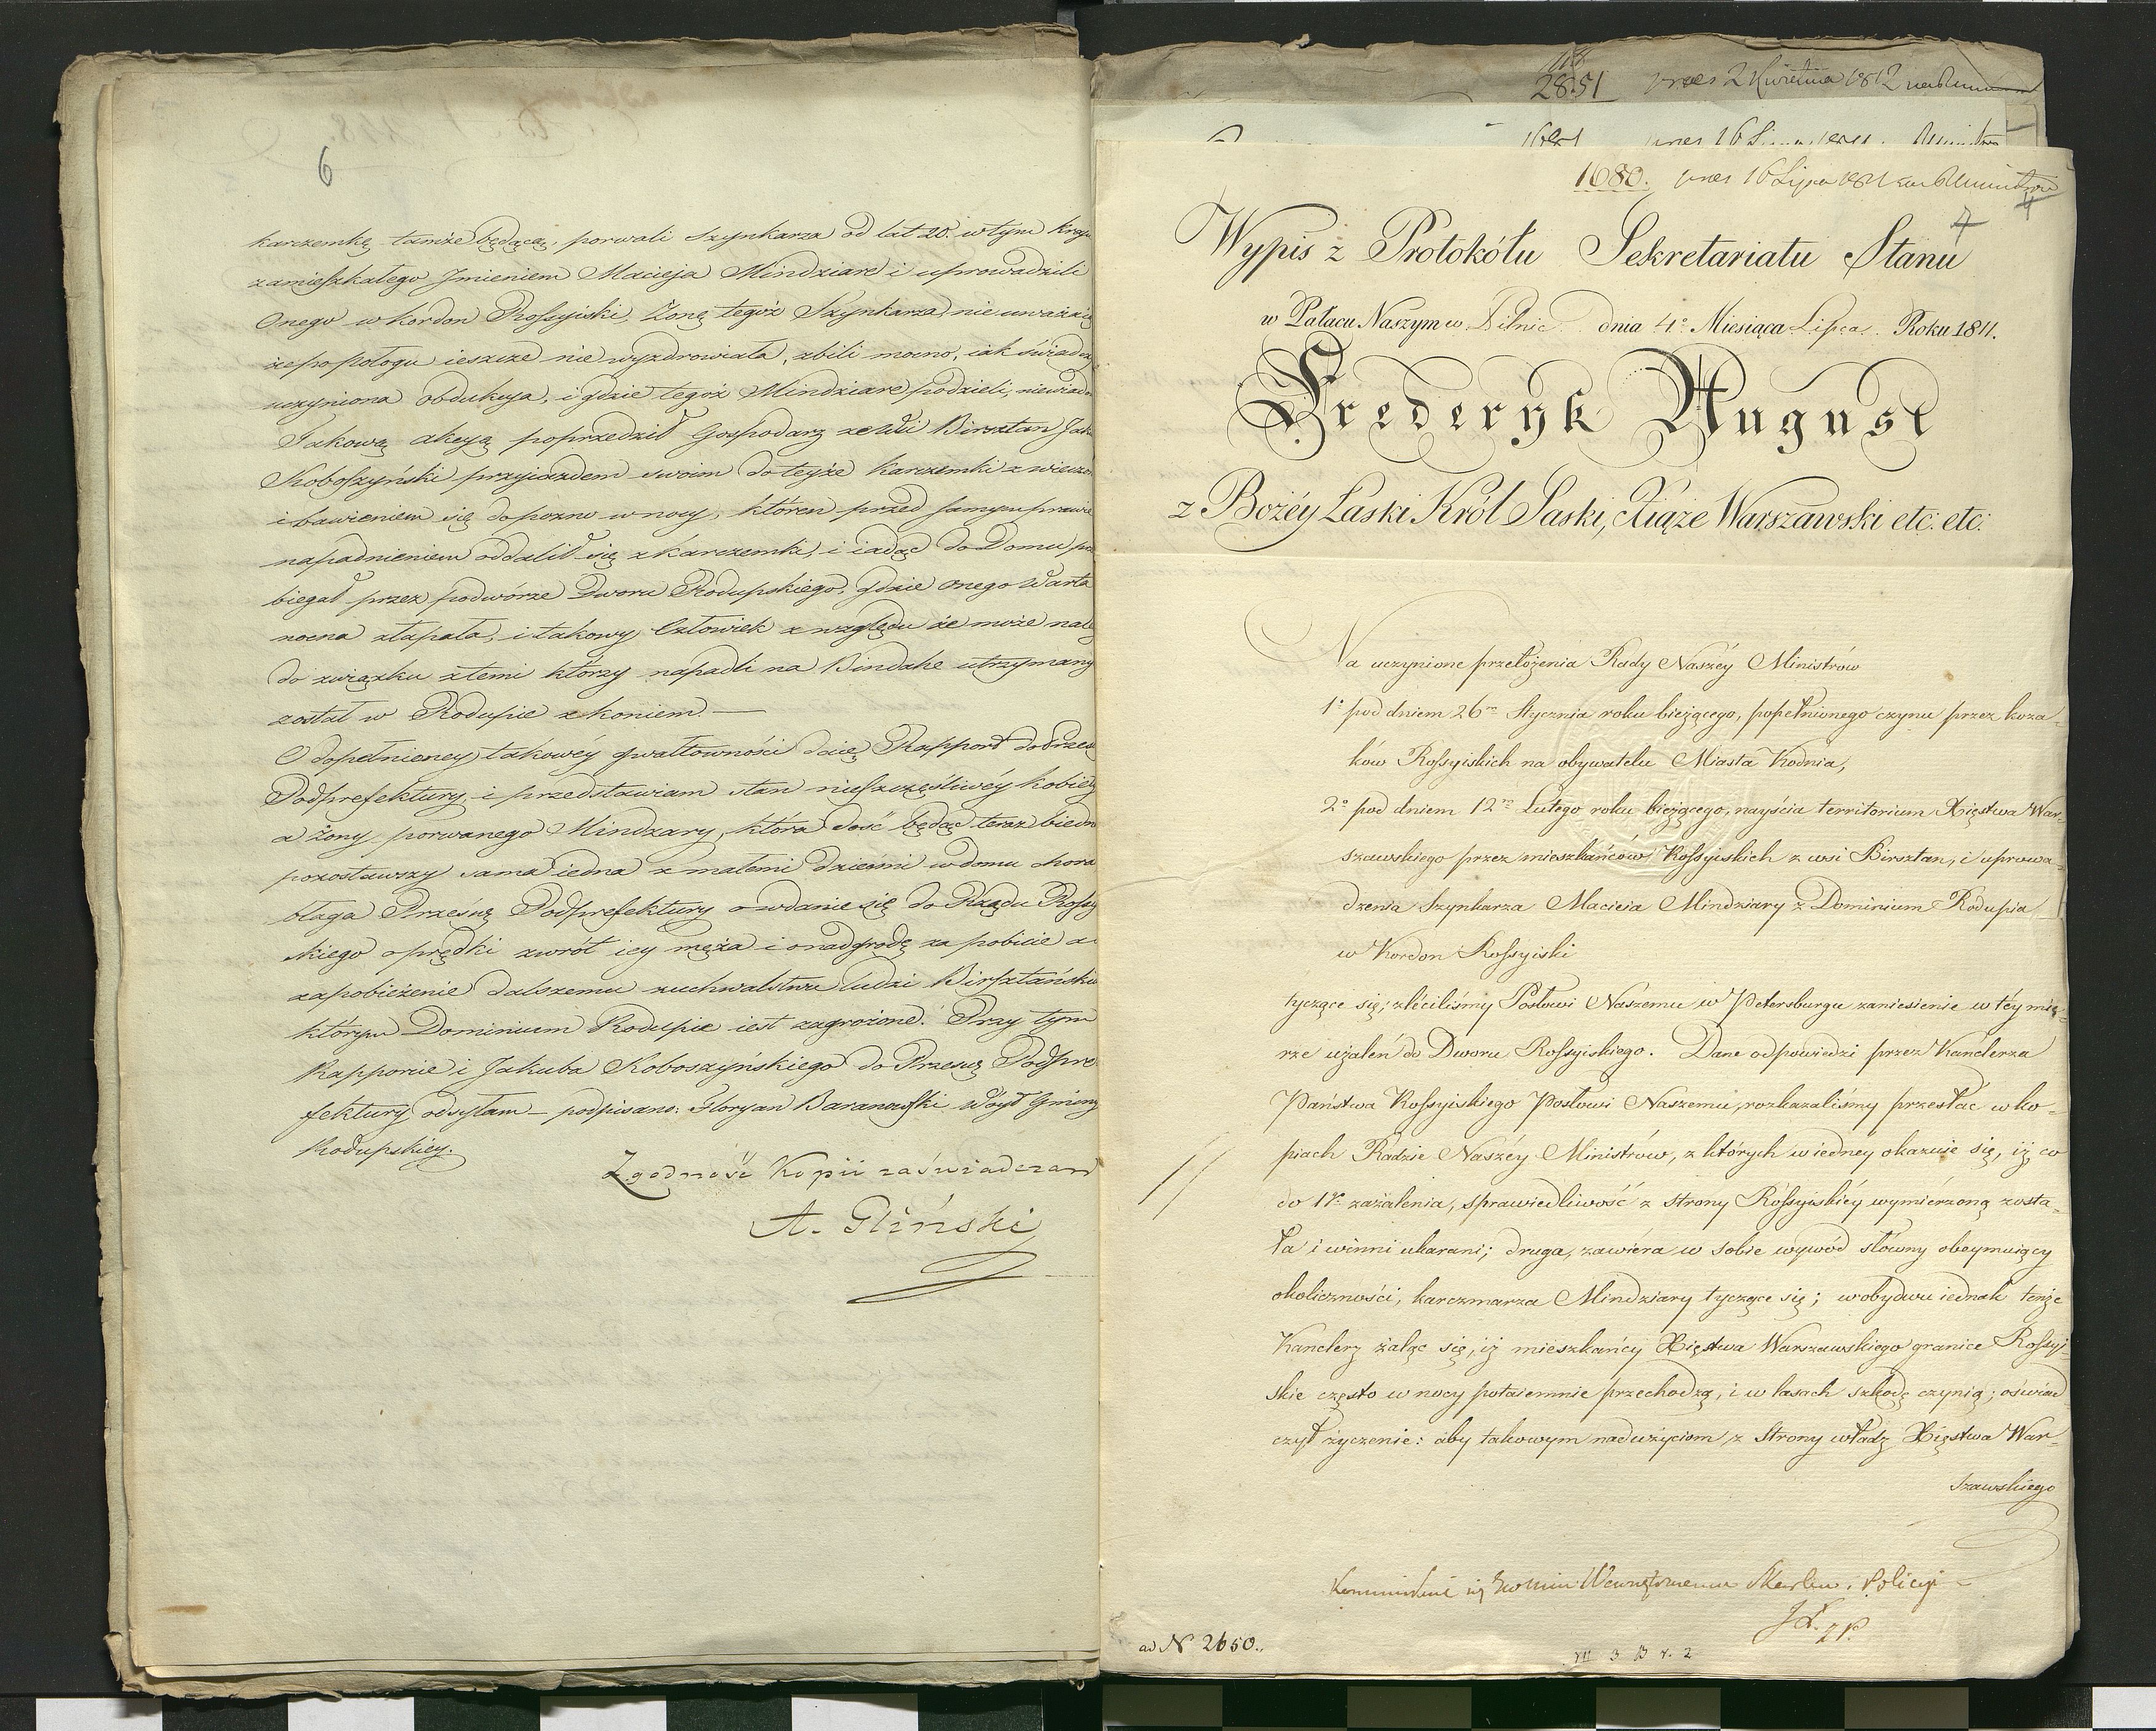 6
karczemkę tamże będącą, porwali Szynkarza od lat 20. w tym kraju
zamieszkałego Jmieniem Macieja Mindziare i uprowadzili
Onego w kordon Rossyiski, Żonę tegóż Szynkarza nie uważaiąc
że po połogu ieszcze nie wyzdrowiała, zbili mocno, iak świadczy
uczyniona obdukcya, i gdzie tegóż Mindziare podzieli, niewiado
Takową akcyą poprzedził Gospodarz ze Wsi Birsztan Jak
Koboszyński przyjazdem swoim do teyże karczemki z wieczo
i bawieniem się do pozno w nocy, któren przed samym prawie
napadnieniem oddalił się z karczemki, i iadąc do Domu prze
biegał przez podwórze Dworu Rodupskiego, gdzie onego Warta
nocna złapała, i takowy Człowiek z względu że może należ
do związku z temi którzy napadli na Bindahe utrzymany
został w Rodupie z koniem. —
O dopełnioney takowéy gwałtowności daię Rapport do Prześw
Podprefektury, i przedstawiam stan nieszczęśliwéy kobiety
a żony porwanego Mindzary, która dość będąc teraz biedn
pozostawszy sama iedna z małemi dziećmi w domu chora
błaga Prześwę Podprefektury o wdanie się do Rządu Rossy
skiego o prędki zwrót iey męża i o nadgrodę za pobicie a
zapobieżenie dalszemu zuchwalstwu ludzi Birsztańskich
którym Dominium Rodupie iest zagrożone. Przy tym
Rapporcie i Jakuba Koboszyńskiego do Przeswę Podpre-
fektury odsyłam — podpisano: Floryan Baranowski Wóyt Gminy
Rodupskiey.
Zgodność Kopii zaświadczam
A. Gliński
2851 praes 2 Kwietnia 1812
1681 praes 16 Lipca 1811
1680. praes 16 Lipca 1811
7
Wypis z Protokółu Sekretariatu Stanu
w Pałacu Naszym w Pilnic dnia 4o. Miesiąca Lipca. Roku 1811.
Frederyk August
z Bożéy Łaski Król Saski, Xiąże Warszawski etc: etc:
Na uczynione przełożenia Rady Naszéy Ministrów
1o pod dniem 26m Stycznia roku bieżącego, popełnionego czynu przez koza-
ków Rossyiskich na obywatelu Miasta Kodnia,
2o pod dniem 12m Lutego roku bieżącego, nayścia territorium Xięstwa War-
szawskiego przez mieszkańców Rossyiskich z wsi Birsztan, i uprowa-
dzenia Szynkarza Macieia Mindziary z Dominium Rodupia
w Kordon Rossyiski
tyczące się; zleciliśmy Posłowi Naszemu w Petersburgu zaniesienie w téy mie-
rze użaleń do Dworu Rossyiskiego. Dane odpowiedzi przez Kanclerza
Państwa Rossyiskiego Posłowi Naszemu, rozkazaliśmy przesłać w ko-
piach Radzie Naszéy Ministrów, z których w iedney okazuie się, iż co
do 1go zażalenia, sprawiedliwość z strony Rossyiskiéy wymierzoną zosta-
ła i winni ukarani; druga, zawiera w sobie wywód słówny obeymuiący
okoliczności, karczmarza Mindziary tyczące się; w obydwu iednak tenże
Kanclerz żaląc się, iż mieszkańcy Xięstwa Warszawskiego granice Rossyi-
skie często w nocy potaiemnie przechodzą, i w lasach szkodę czynią; oświad-
czył życzenie: aby takowym nadużyciom z Strony władz Xięstwa War-
szawskiego
Wewnętrznemu Skarbu i Policyi
ad N 2650.
VII 3 B v. 2